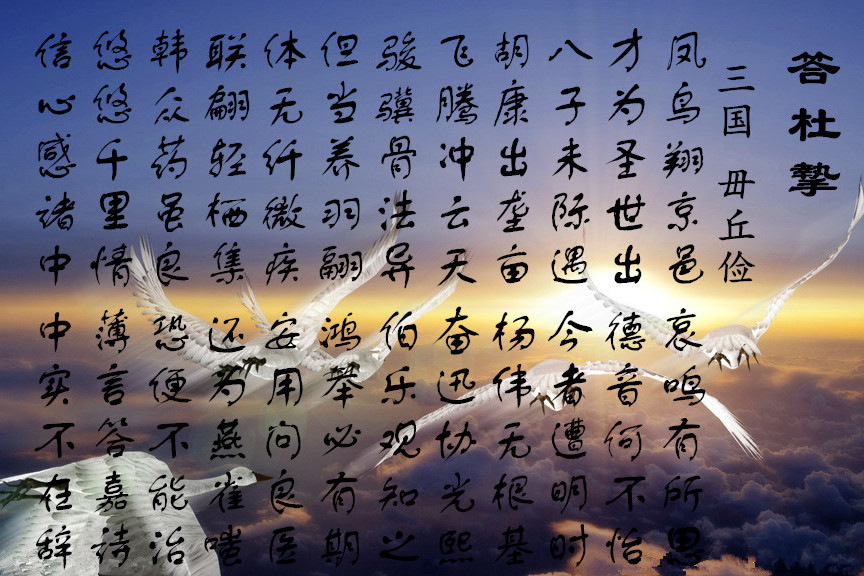 答杜挚
三国 毌丘俭
凤鸟翔京邑 哀鸣有所思
才为圣世出 德音何不怡
八子未际遇 今者遭明时
胡康出垄亩 杨伟无根基
飞腾冲云天 奋迅协光熙
骏骥骨法异 伯乐观知之
但当养羽翮 鸿举必有期
体无纤微疾 安用问良医
联翩轻栖集 还为燕雀嗤
韩众药虽良 恐便不能治
悠悠千里情 薄言答嘉诗
信心感诸中 中实不在辞